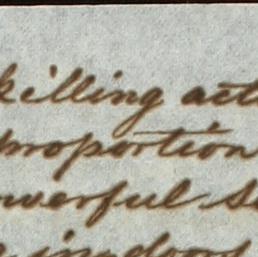 killing act
proportion
owerful s